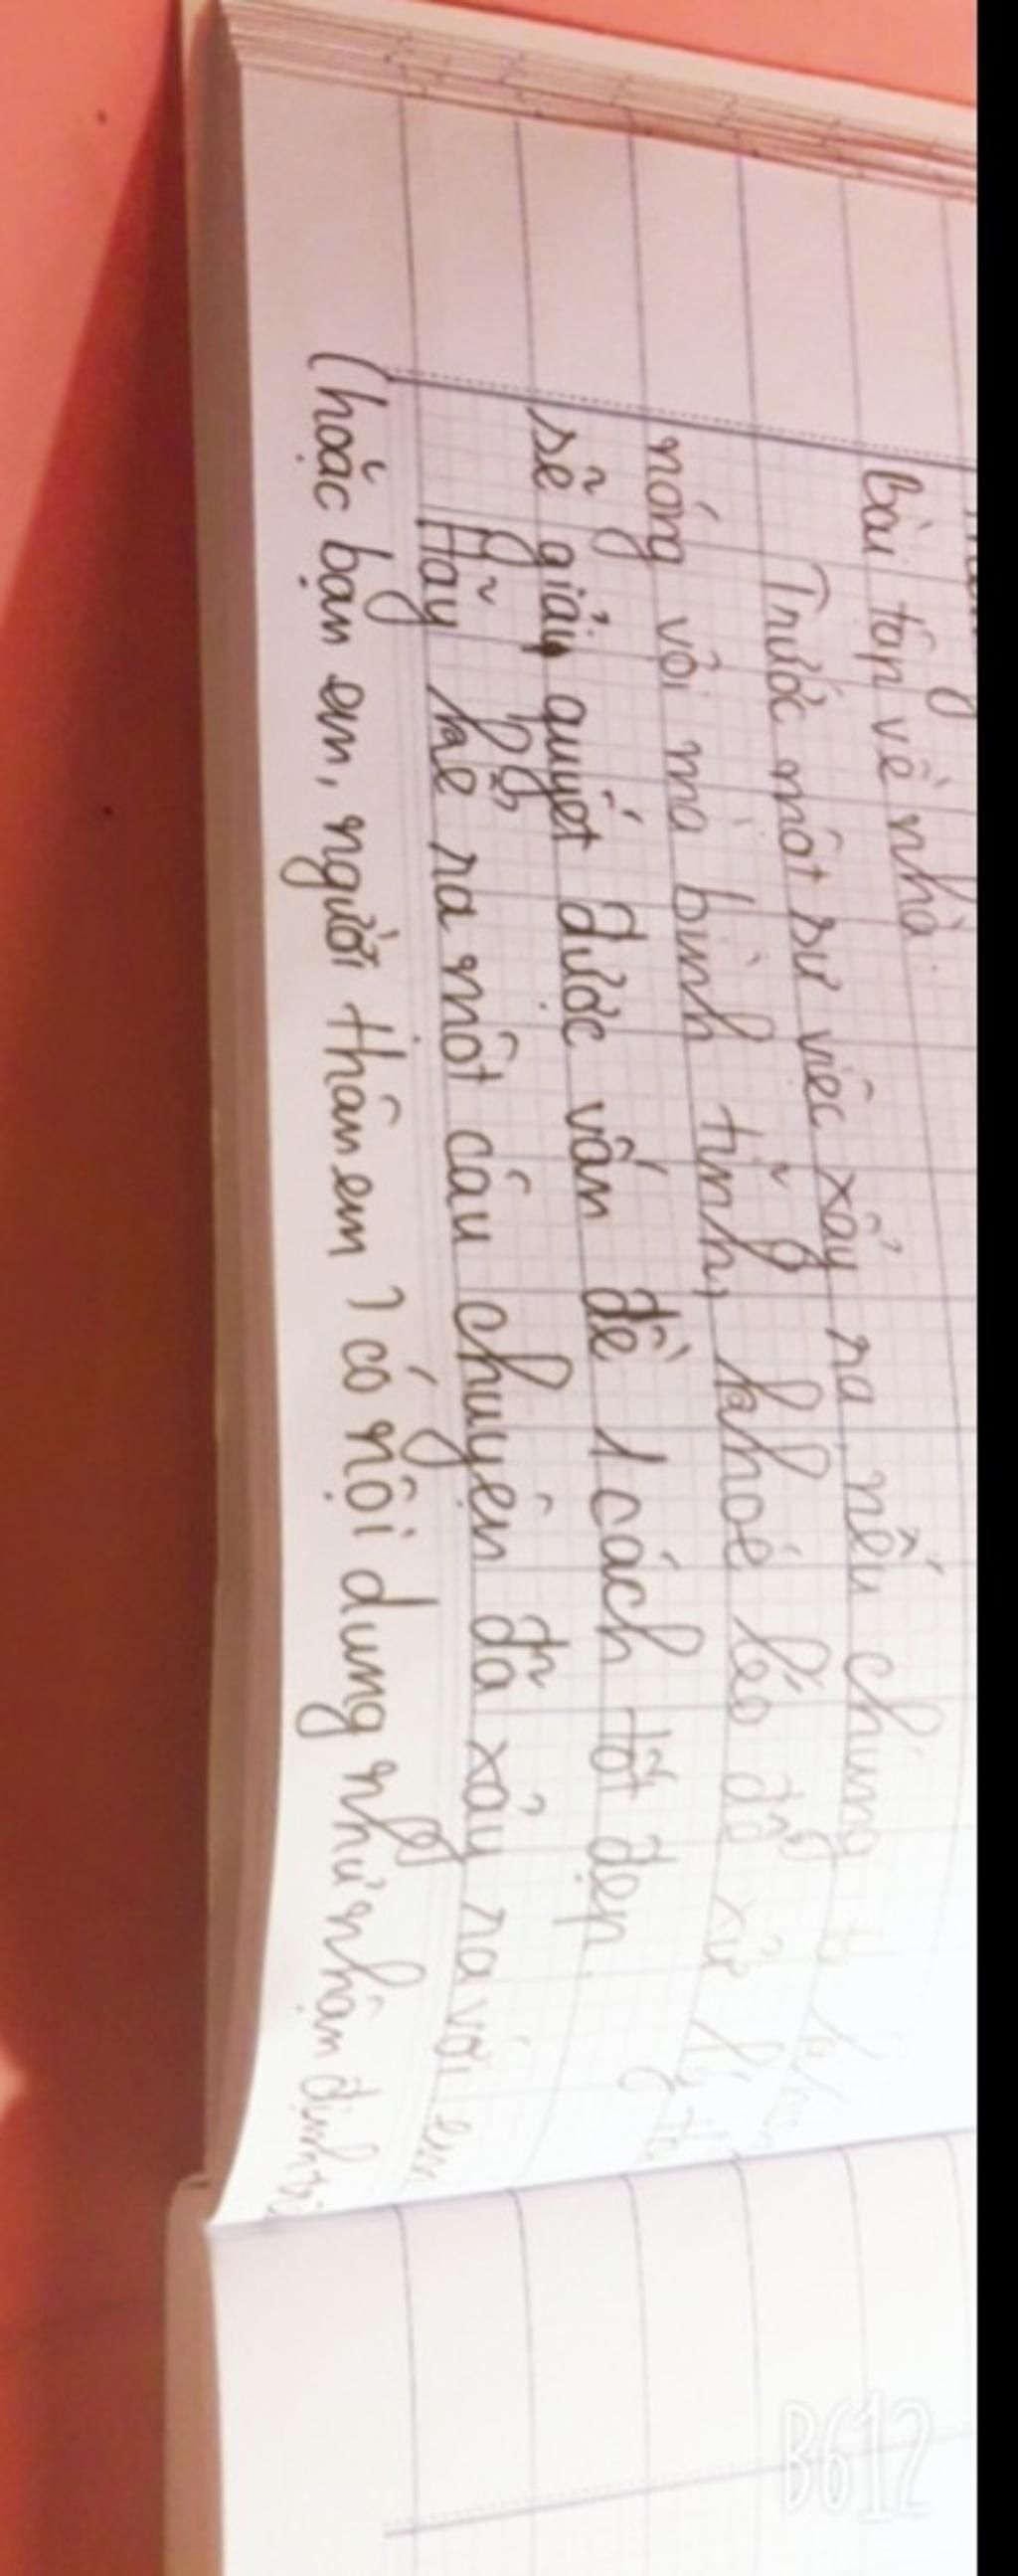 Bài tập về nhà
Trước một sự việc xảy ra, nếu chúng ta
nóng vội mà bình tĩnh, khoé léo để xử lý
sẽ giải quyết được vấn đề 1 cách tốt đẹp.
Hãy kể ra một câu chuyện đã xảy ra với em
(hoặc bạn em, người thân em) có nội dung như nhận định
B612